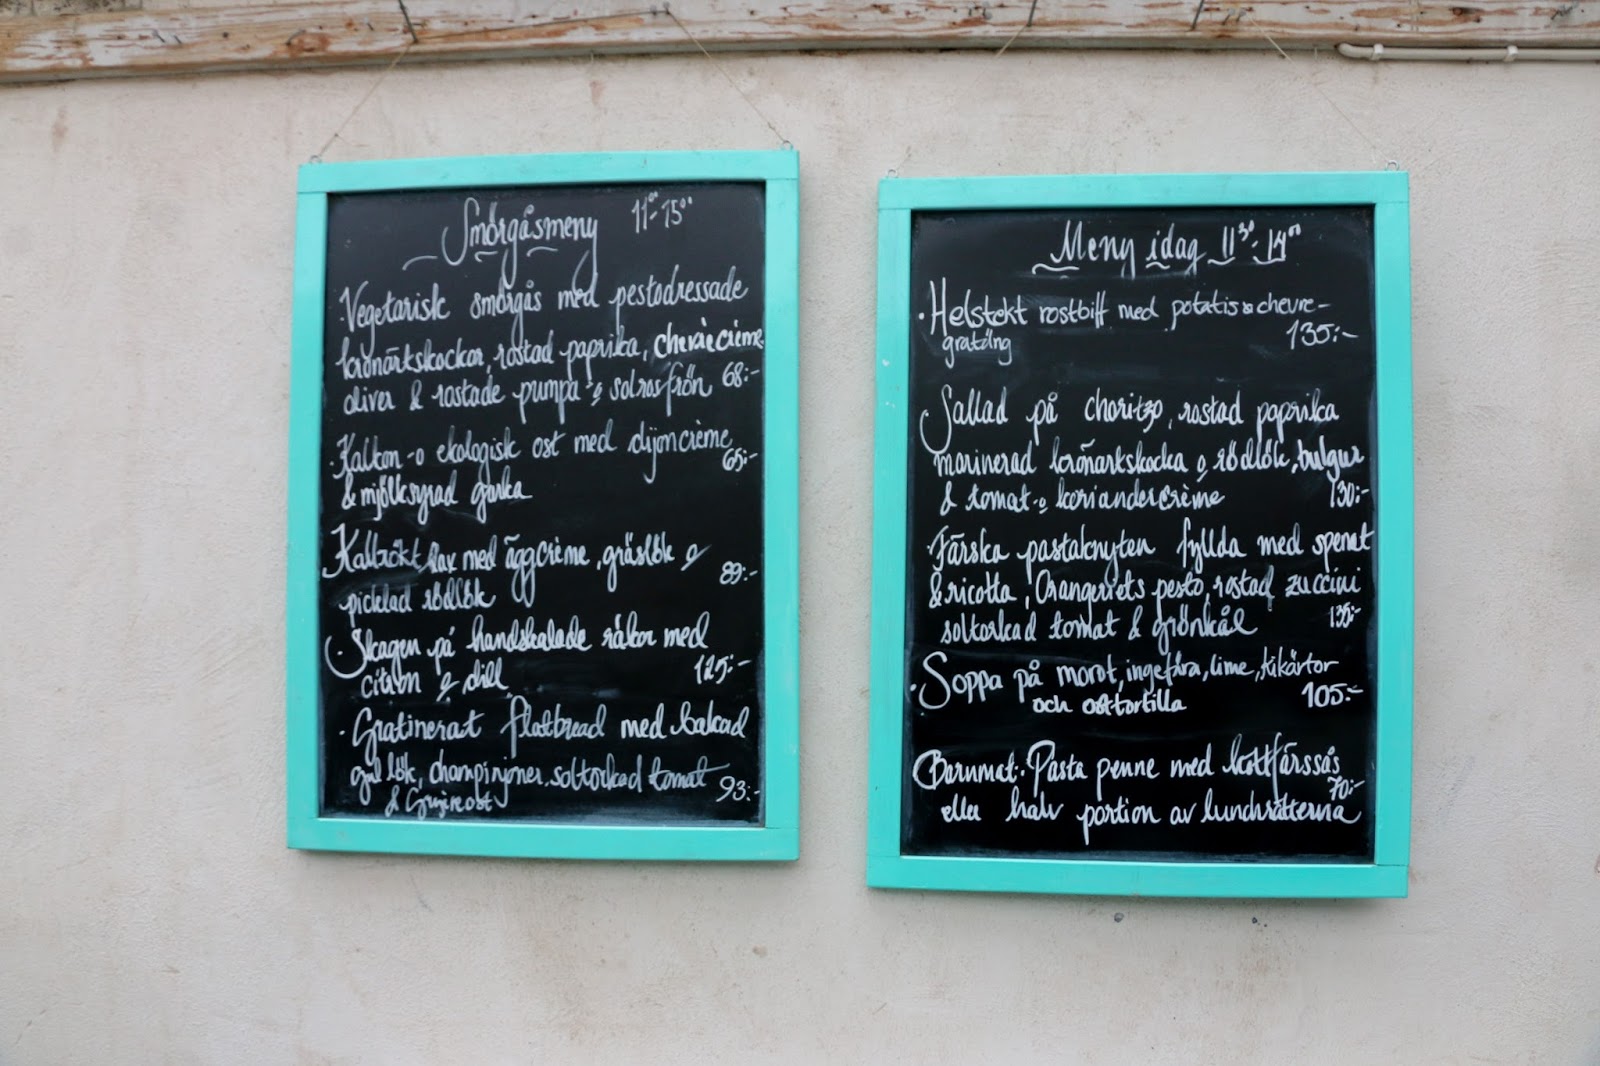 Smörgåsmeny 11⁰⁰-15⁰⁰
·Vegetarisk smörgås med pestodressade
kronärtskockor, rostad paprika, chevrécrème
oliver & rostade pumpa- o solrosfrön 68:-
·Kalkon -o ekologisk ost med dijoncrème
65:-
& mjölksyrad gurka
·Kallrökt lax med äggcrème, gräslök o
89:-
picklad rödlök
·Skagen på handskalade räkor med
citron o dill 125:-
·Gratinerat flatbread med bakad
gul lök, champinjoner, soltorkad tomat
& Gruyereost 93:-
Meny idag 11³⁰-14⁰⁰
·Helstekt rostbiff med potatis o chevre-
gratäng 135:-
Sallad på choritzo, rostad paprika
marinerad kronärtskocka o rödlök, bulgur
& tomat -o koriandercrème 130:-
·Färska pastaknyten fyllda med spenat
& ricotta, Orangeriets pesto, rostad zuccini
soltorkad tomat & grönkål 135:-
·Soppa på morot, ingefära, lime, kikärtor
och osttortilla 105:-
Barnmat:. Pasta penne med köttfärssås
70:-
eller halv portion av lunchrätterna